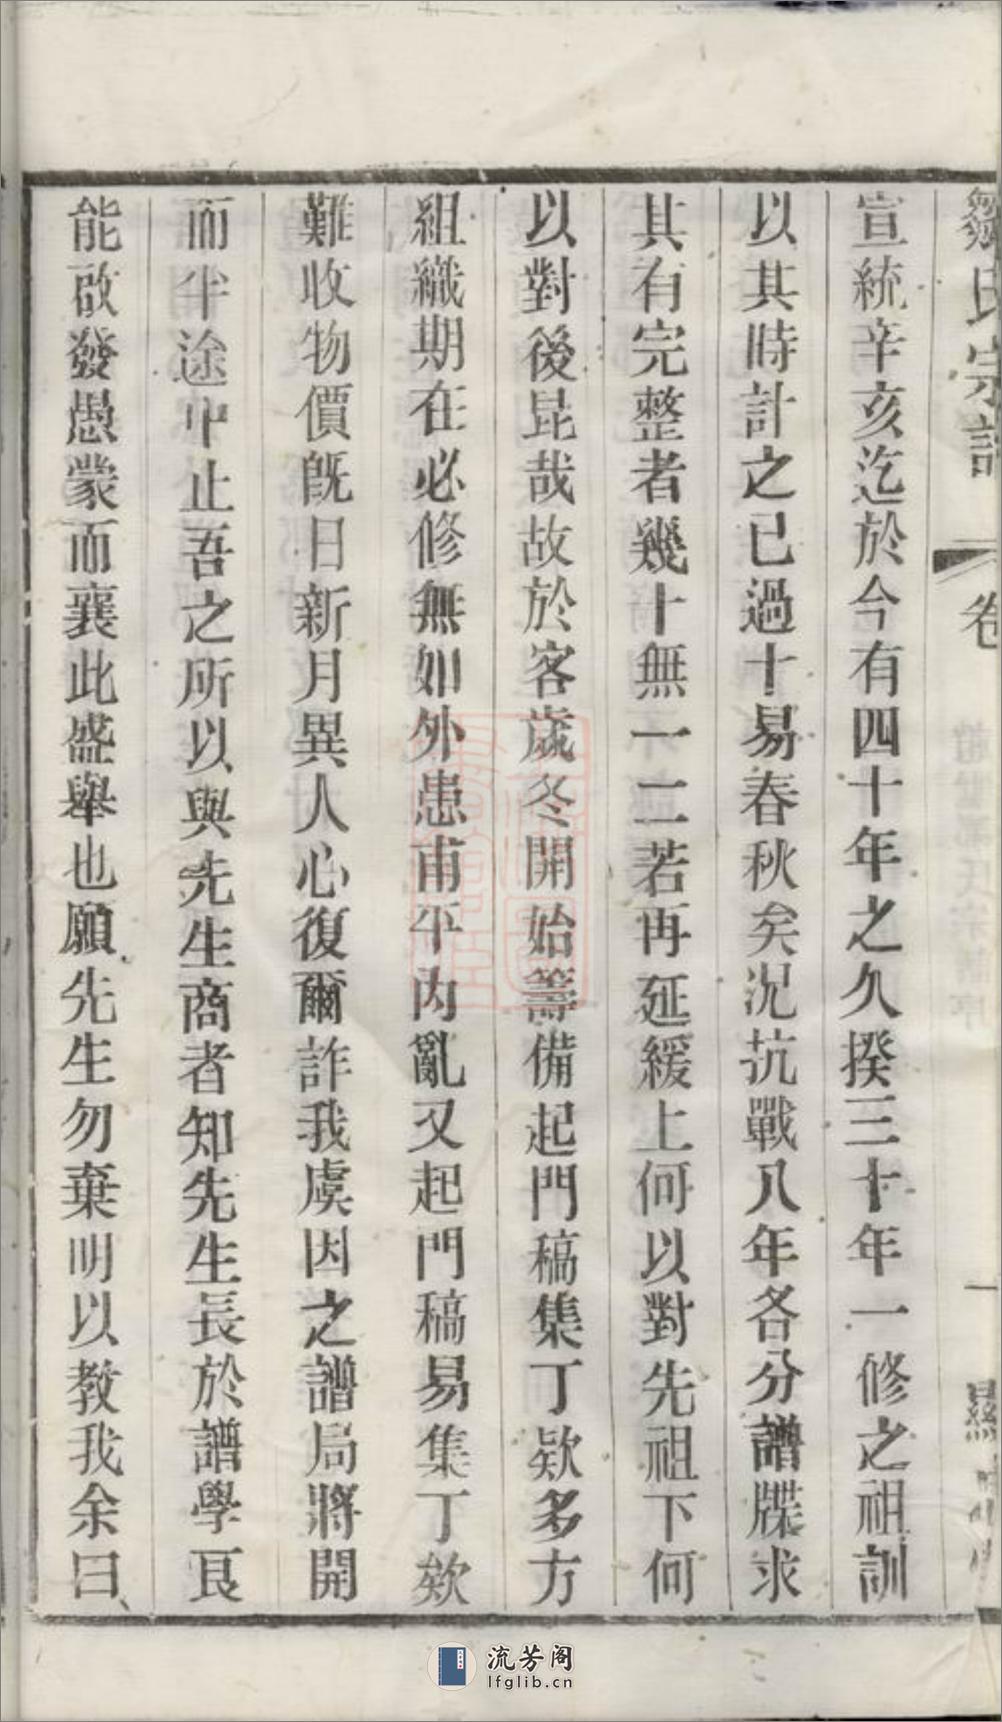 鄒氏宗譜 卷 一
宣統辛亥迄於今有四十年之久揆三十年一修之祖訓
以其時計之已過十易春秋矣況抗戰八年各分譜牒求
其有完整者幾十無一二若再延緩上何以對先祖下何
以對後昆哉故於客歲冬開始籌備起門稿集丁欵多方
組織期在必修無如外患甫平內亂又起門稿易集丁欵
難收物價旣日新月異人心復爾詐我虞因之譜局將開
而半途中止吾之所以與先生商者知先生長於譜學良
能啟發愚蒙而襄此盛舉也願先生勿棄明以教我余曰
流芳阁
lfglib.cn